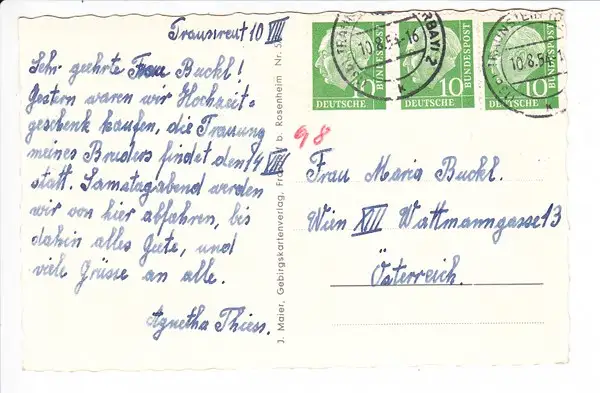 Traunreut 10 VIII
Sehr geehrte Frau Buckl!
Gestern waren wir Hochzeit=
geschenk kaufen, die Trauung
meines Bruders findet den 14 VIII
statt. Samstagabend werden
wir von hier abfahren, bis
dahin alles Gute, und
viele Grüsse an alle.
Agnetha Thiess.
J. Maier, Gebirgskartenverlag, b. Rosenheim Nr. 5
10
DEUTSCHE
BUNDESPOST
10
DEUTSCHE
BUNDESPOST
10
DEUTSCHE
BUNDESPOST
10.8.54-16
10.8.54
98
Frau Maria Buckl.
Wien XIII Wattmanngasse 13
Österreich.